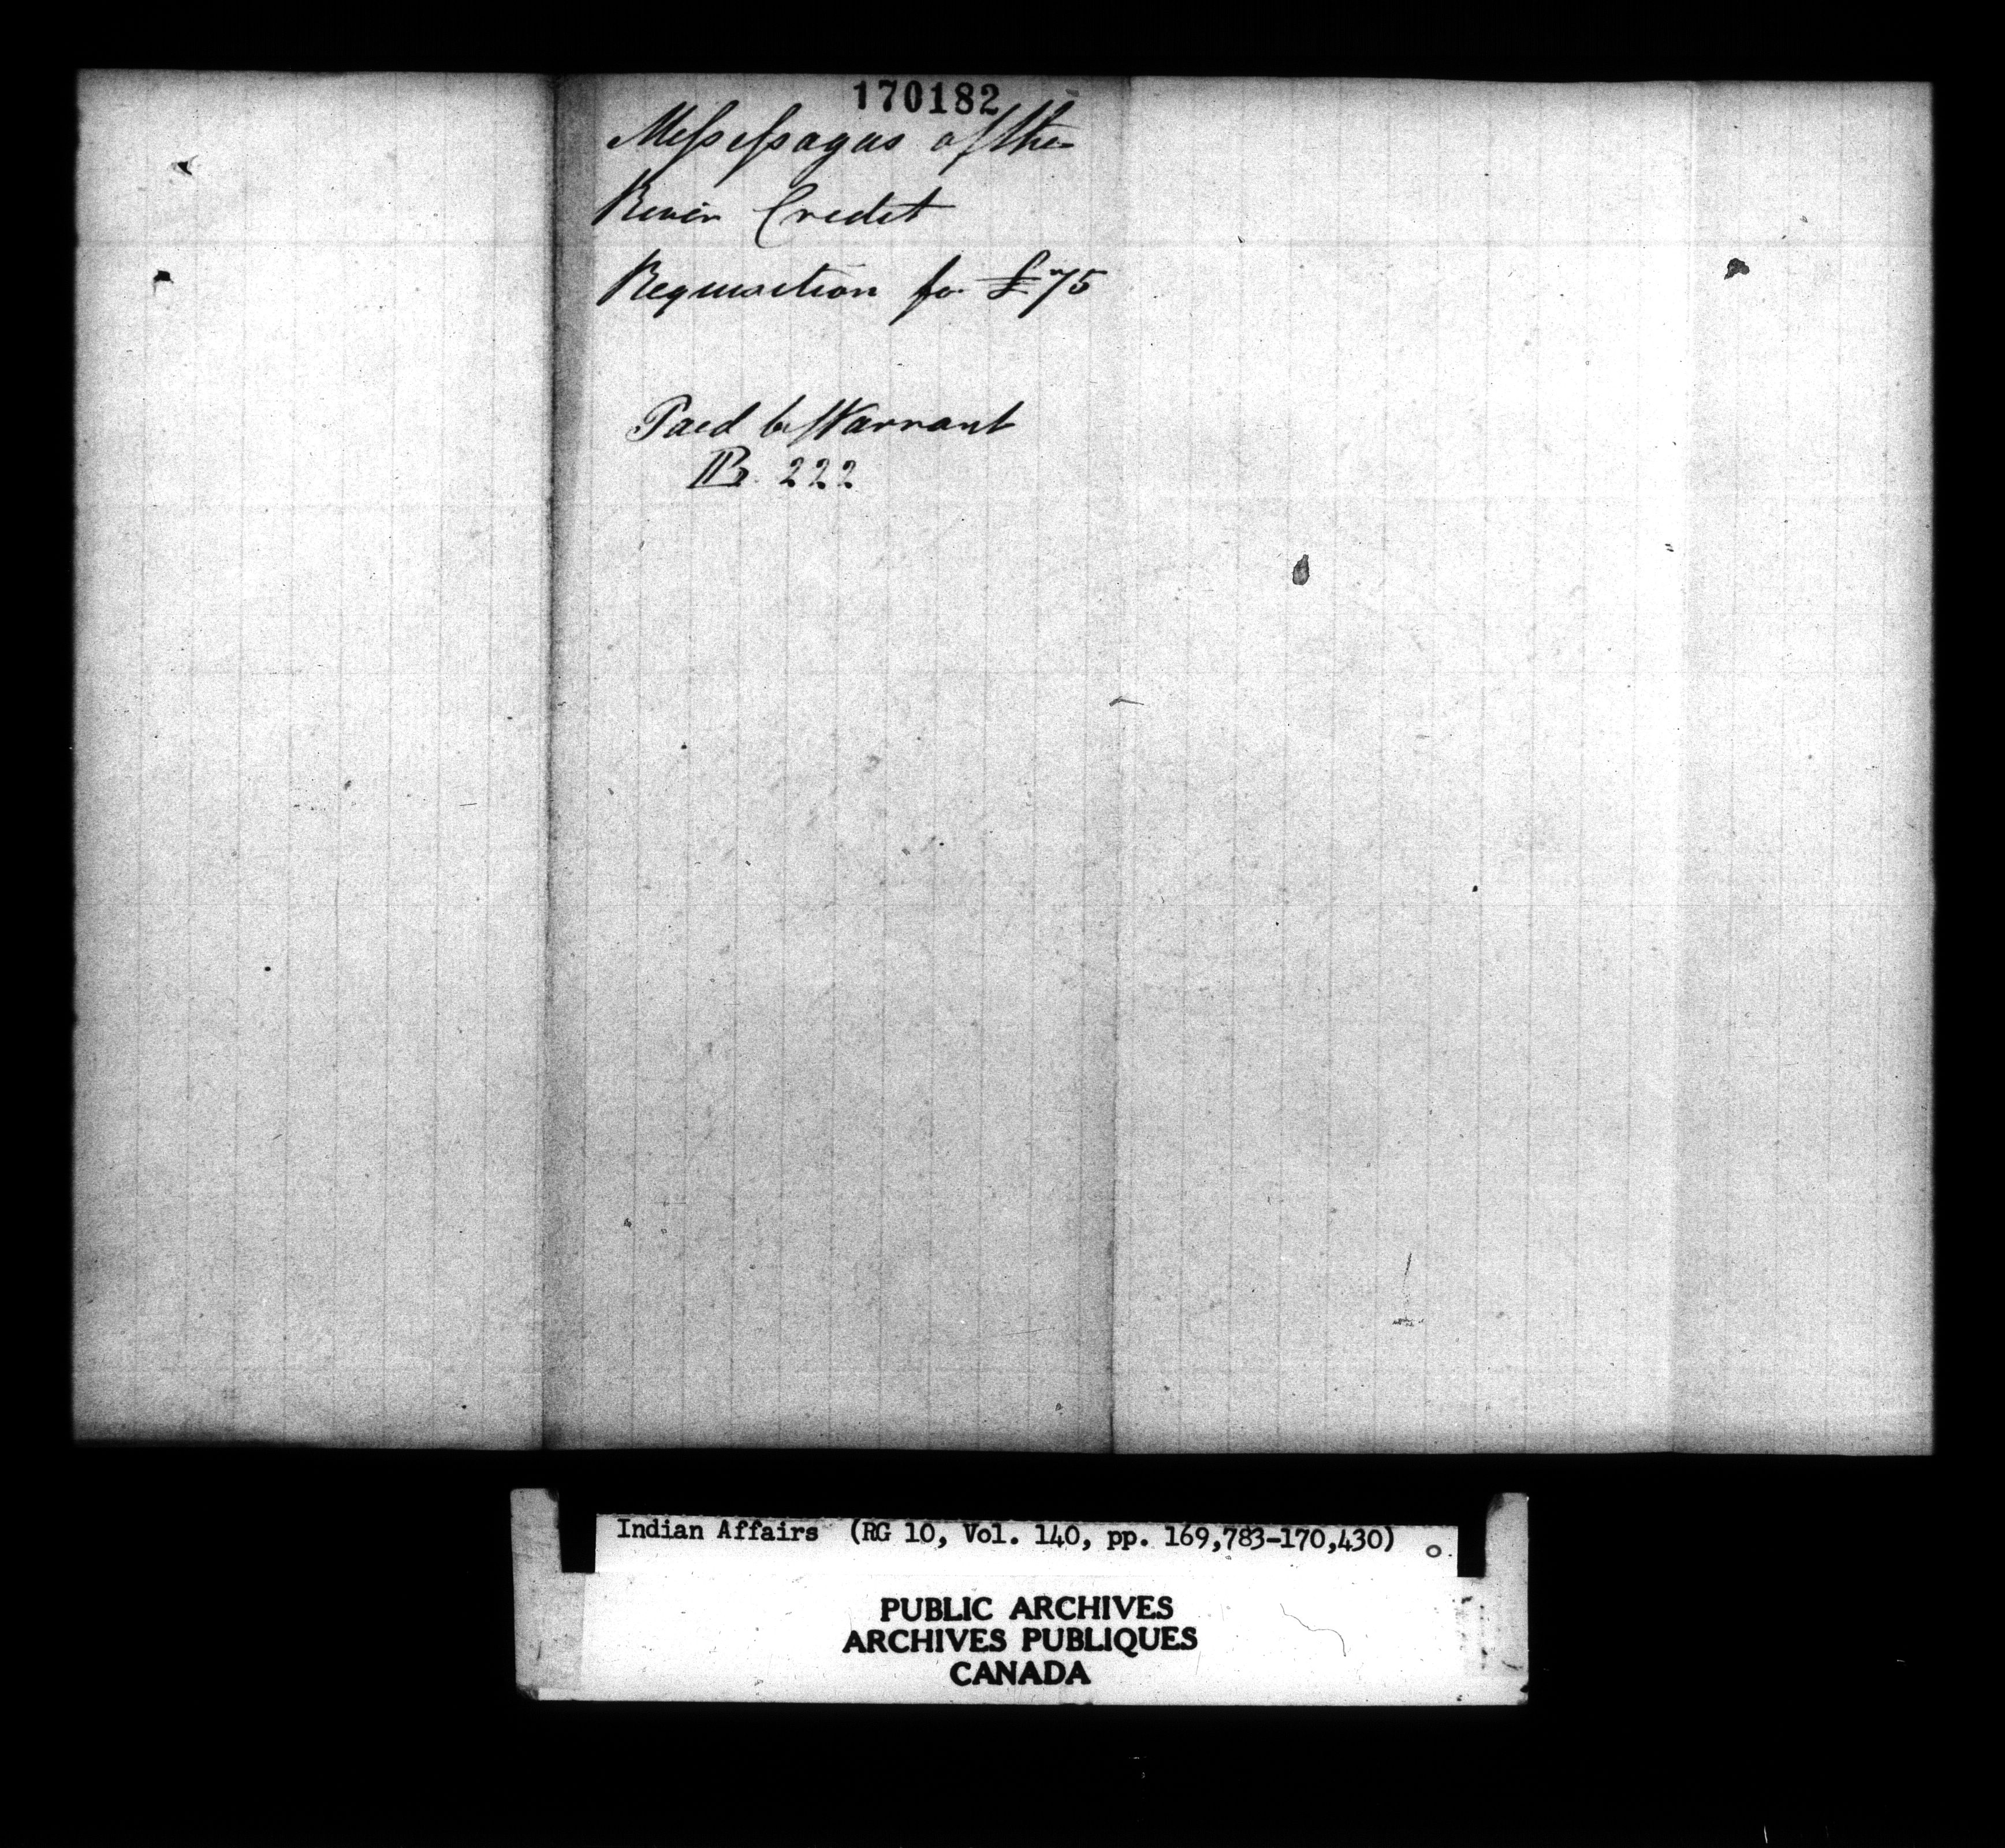 170182
Messessagus of the
River Credit
Requisition for £75
Paid by Warrant
B. 222
Indian Affairs (RG 10, Vol. 140, pp. 169,783-170,430)
PUBLIC ARCHIVES
ARCHIVES PUBLIQUES
CANADA